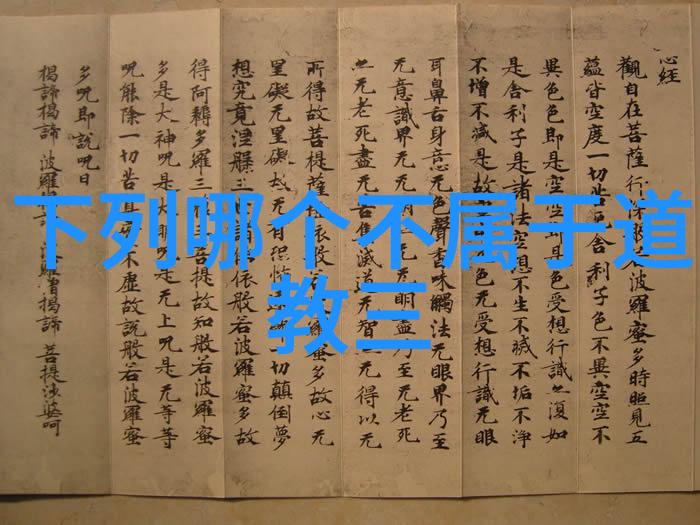 下列哪个不属于道
教三
心經
觀自在菩薩行深般若波羅蜜多時照見五
蘊皆空度一切苦厄舍利子色不異空空不
異色色即是空空即是色受想行識亦復如
是舍利子是諸法空想不生不滅不垢不淨
不增不減是故色无受想行識无眼
耳鼻舌身意无色聲香味觸法无眼界乃至
无意識界无无明无明盡乃至无老死
亦无老死盡无苦集滅道无智亦无得以无
所得故菩提薩埵依般若羅蜜多故心无
罣礙无罣礙故无有恐怖一切顛倒夢
想究竟涅槃三依般若波羅蜜多故
得阿耨多羅三菩提故知般若波羅蜜
多是大神呪是大明呪是无上呪是无等等
呪能除一切苦真實不虛故說般若波羅蜜
多呪即說呪曰
揭諦揭諦 波羅揭諦 波羅僧揭諦 菩提莎婆呵